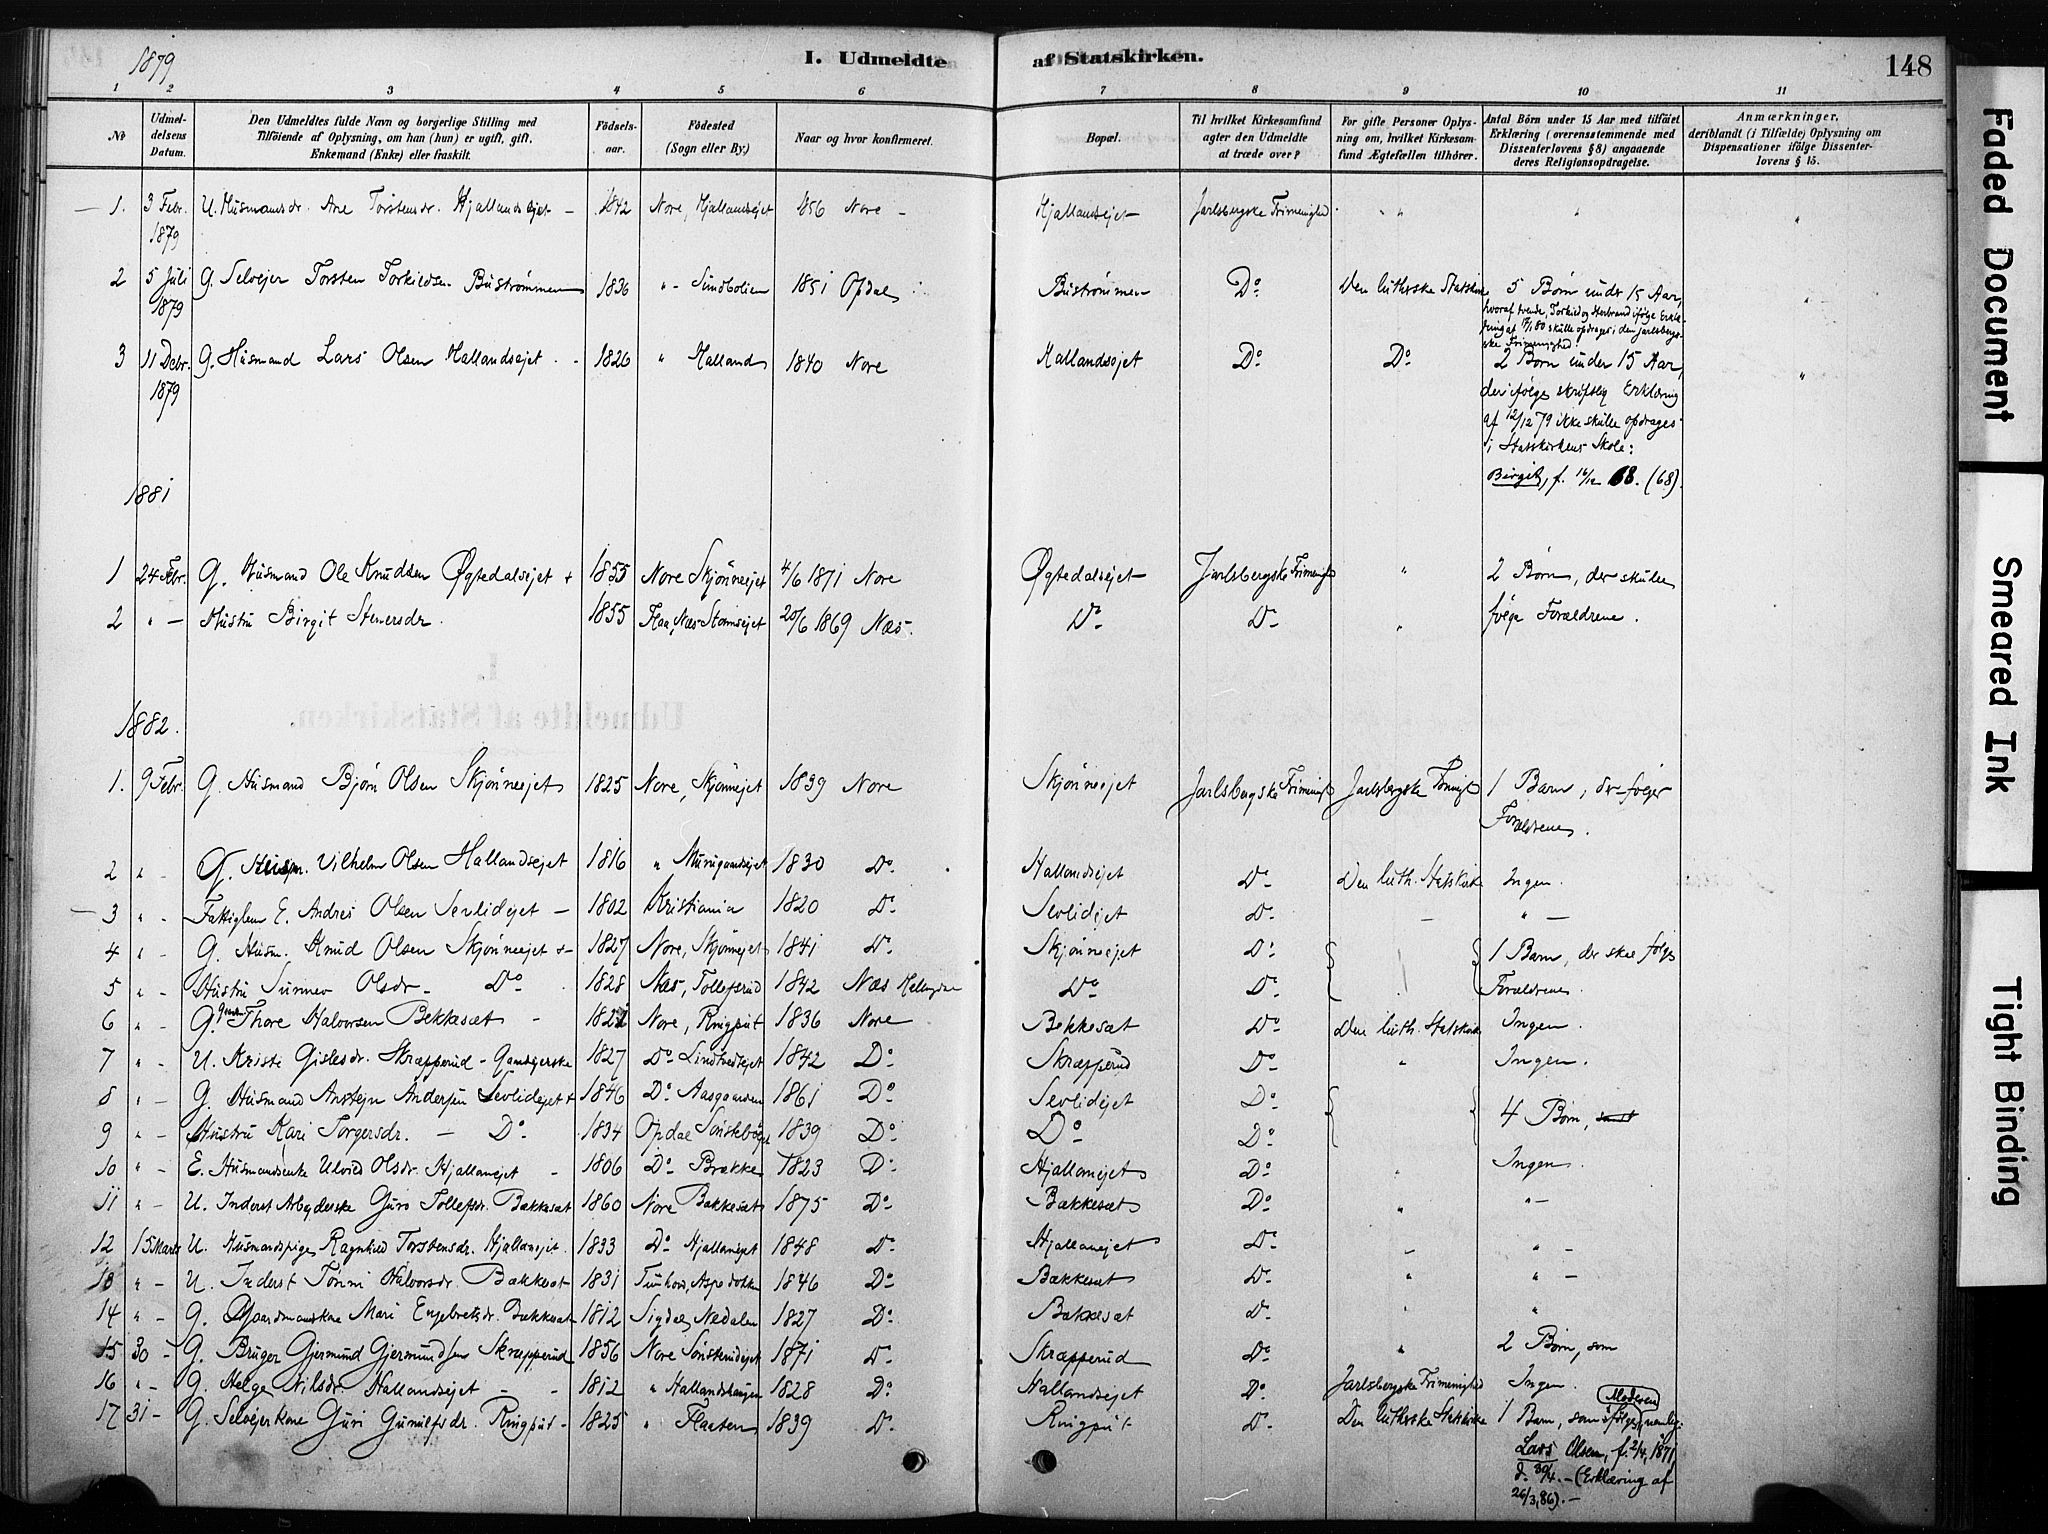 1879
I. Udmeldte af Statskirken.
148
1 2 3 4 5 6 7 8 9 10 11
No
Udmeldelsens Datum.
Den Udmeldtes fulde Navn og borgerlige Stilling med
Tilföiende af Oplysning, om han (hun) er ugift, gift.
Enkemand (Enke) eller fraskilt.
Födselsaar.
Födested
(Sogn eller By.)
Naar og hvor konfirmeret.
Bopæl.
Til hvilket Kirkesamfund
agter den Udmeldte
at træde over?
For gifte Personer Oplysning om, hvilket Kirkesamfund Ægtefællen tilhörer.
Antal Börn under 15 Aar med tilföiet
Erklæring (overensstemmende med
Dissenterlovens § 8) angaaende
deres Religionsopdragelse.
Anmærkninger,
deriblandt (i Tilfælde) Oplysning om
Dispensationer ifölge Dissenterlovens § 15.
1. 3 Febr. 1879 U. Husmandsdr. Ane Torstensdr. Hjallandsejet - 1842 Nore, Hjallandsejet 1856 Nore - Hjallandsejet Jarlsbergske Frimenighed " " " "
2 5 Juli 1879 G. Selvejer Torsten Torkildsen Bustrømmen 1836 " Sundbolien 1851 Opdal Bustrømmen Do Den lutherske Statskirke 5 Børn under 15 Aar,
hvoraf tvende, Torkild og Herbrand ifølge Erklæring af skulle opdrages i den jarlsbergske Frimenighed.
3 11 Debr. 1879 G. Husmand Lars Olsen Hallandsejet - 1826 " Halland 1840 Nore Hallandsejet Do Do 2 Børn under 15 Aar,
der ifølge skriftlig Erklæring
af 12/12 79 ikke skulle opdrages
i Statskirkens Skole:
Birgit, f. 68. (68).
1881
1 24 Febr. G. Husmand Ole Knudsen Øgtedalsejet + 1855 Nore Skjønneejet 4/6 1871 Nore Øgtedalsejet Jarlsbergske Frimenighed " 2 Børn, der skulle
2 " - Hustru Birgit Stenersdr. 1855 Flaa, Næs 20/6 1869 Næs. Do Do " følge Forældrene.
1882.
1. 9 Febr. G. Husmand Bjørn Olsen Skjønneejet 1825 Nore, Skjønneejet 1839 Nore Skjønneejet Jarlsbergske Frimenighd Jarlsbergske 1 Barn, der følger
Forældrene.
2 " - G. Vilhelm Olsen Hallandsejet 1816 " 1830 Do. Hallandsejet Do. Den luth. Statskirke Ingen.
3 " - Fattiglem E. Andres Olsen Sevlidejet - 1802 Kristiania 1820 Do Sevlidejet Do. - " -
4 " - G. Husm. Knud Olsen Skjønneejet + 1827 Nore, Skjønneejet 1841 Do. Skjønneejet Do 1 Barn, der skal følge
5 " - Hustru Sunnev Olsdr. Do 1828 Næs, Tollefsrud 1842 Næs Do Do. Forældrene.
6 " - G. Thore Halvorsen Bekkesæt - 1822 Nore, Ringput 1836 Nore Bekkesæt Do Den luth. Statskirke Ingen.
7 " - U. Kristi Gislesdr. Skræpperud - 1827 Do 1842 Do Skræpperud Do " Ingen.
8 " - G. Husmand Anstejn Andersen Sevlidejet + 1846 Do. Aasgaarden 1861 Do Sevlidejet Do - 4 Børn,
9 " - Hustru Kari Torgersdr. - Do. 1834 Opdal 1839 Do Do Do.
10 " - E. Husmandsenke Olsdr. Hjallanejet - 1806 Do Brække 1823 Do. Hjallanejet Do " Ingen.
11 " - U. Inderst Arbejderske Guro Tollefsdr. Bækkesæt 1860 Nore Bækkesæt 1875 Do. Bækkesæt Do " " -
12 15 Marts U. Husmandspige Ragnhild Torstensdr. Hjallanejet. 1833 Do Hjallanejet 1848 Do Hjallanejet Do. - " -
13 " - U. Inderst Tønni Halvorsdr. Bækkesæt 1831 1846 Do Bækkesæt Do " " -
14 " - G. Gaardmandskone Mari Engebretsdr. Bækkesæt 1812 Sigdal, Nedalen 1827 Do. Bækkesæt Do. " "
15 30 - G. Bruger Gjermund Gjermundsen Skræpperud 1856 Nore 1871 Do Skræpperud Do " 2 Børn, som
16 " - G. Helge Nilsdr. Hallandsejet - - 1812 " Hallandshaugen 1828 Do. Hallandsejet Do. Jarlsbergske Frimenighed Ingen.
17 31 - G. Selvejerkone Guri Gunulfsdr. Ringput - 1825 " Flaaten 1839 Do. Ringput Do. Den lutherske Statskirke 1 Barn, som følger Moderen, nemlig:
Lars Olsen, f. 2/4, 1871,
d. 30/4. - (Erklæring af
26/3, 86). -
Faded Document
Smeared Ink
Tight Binding